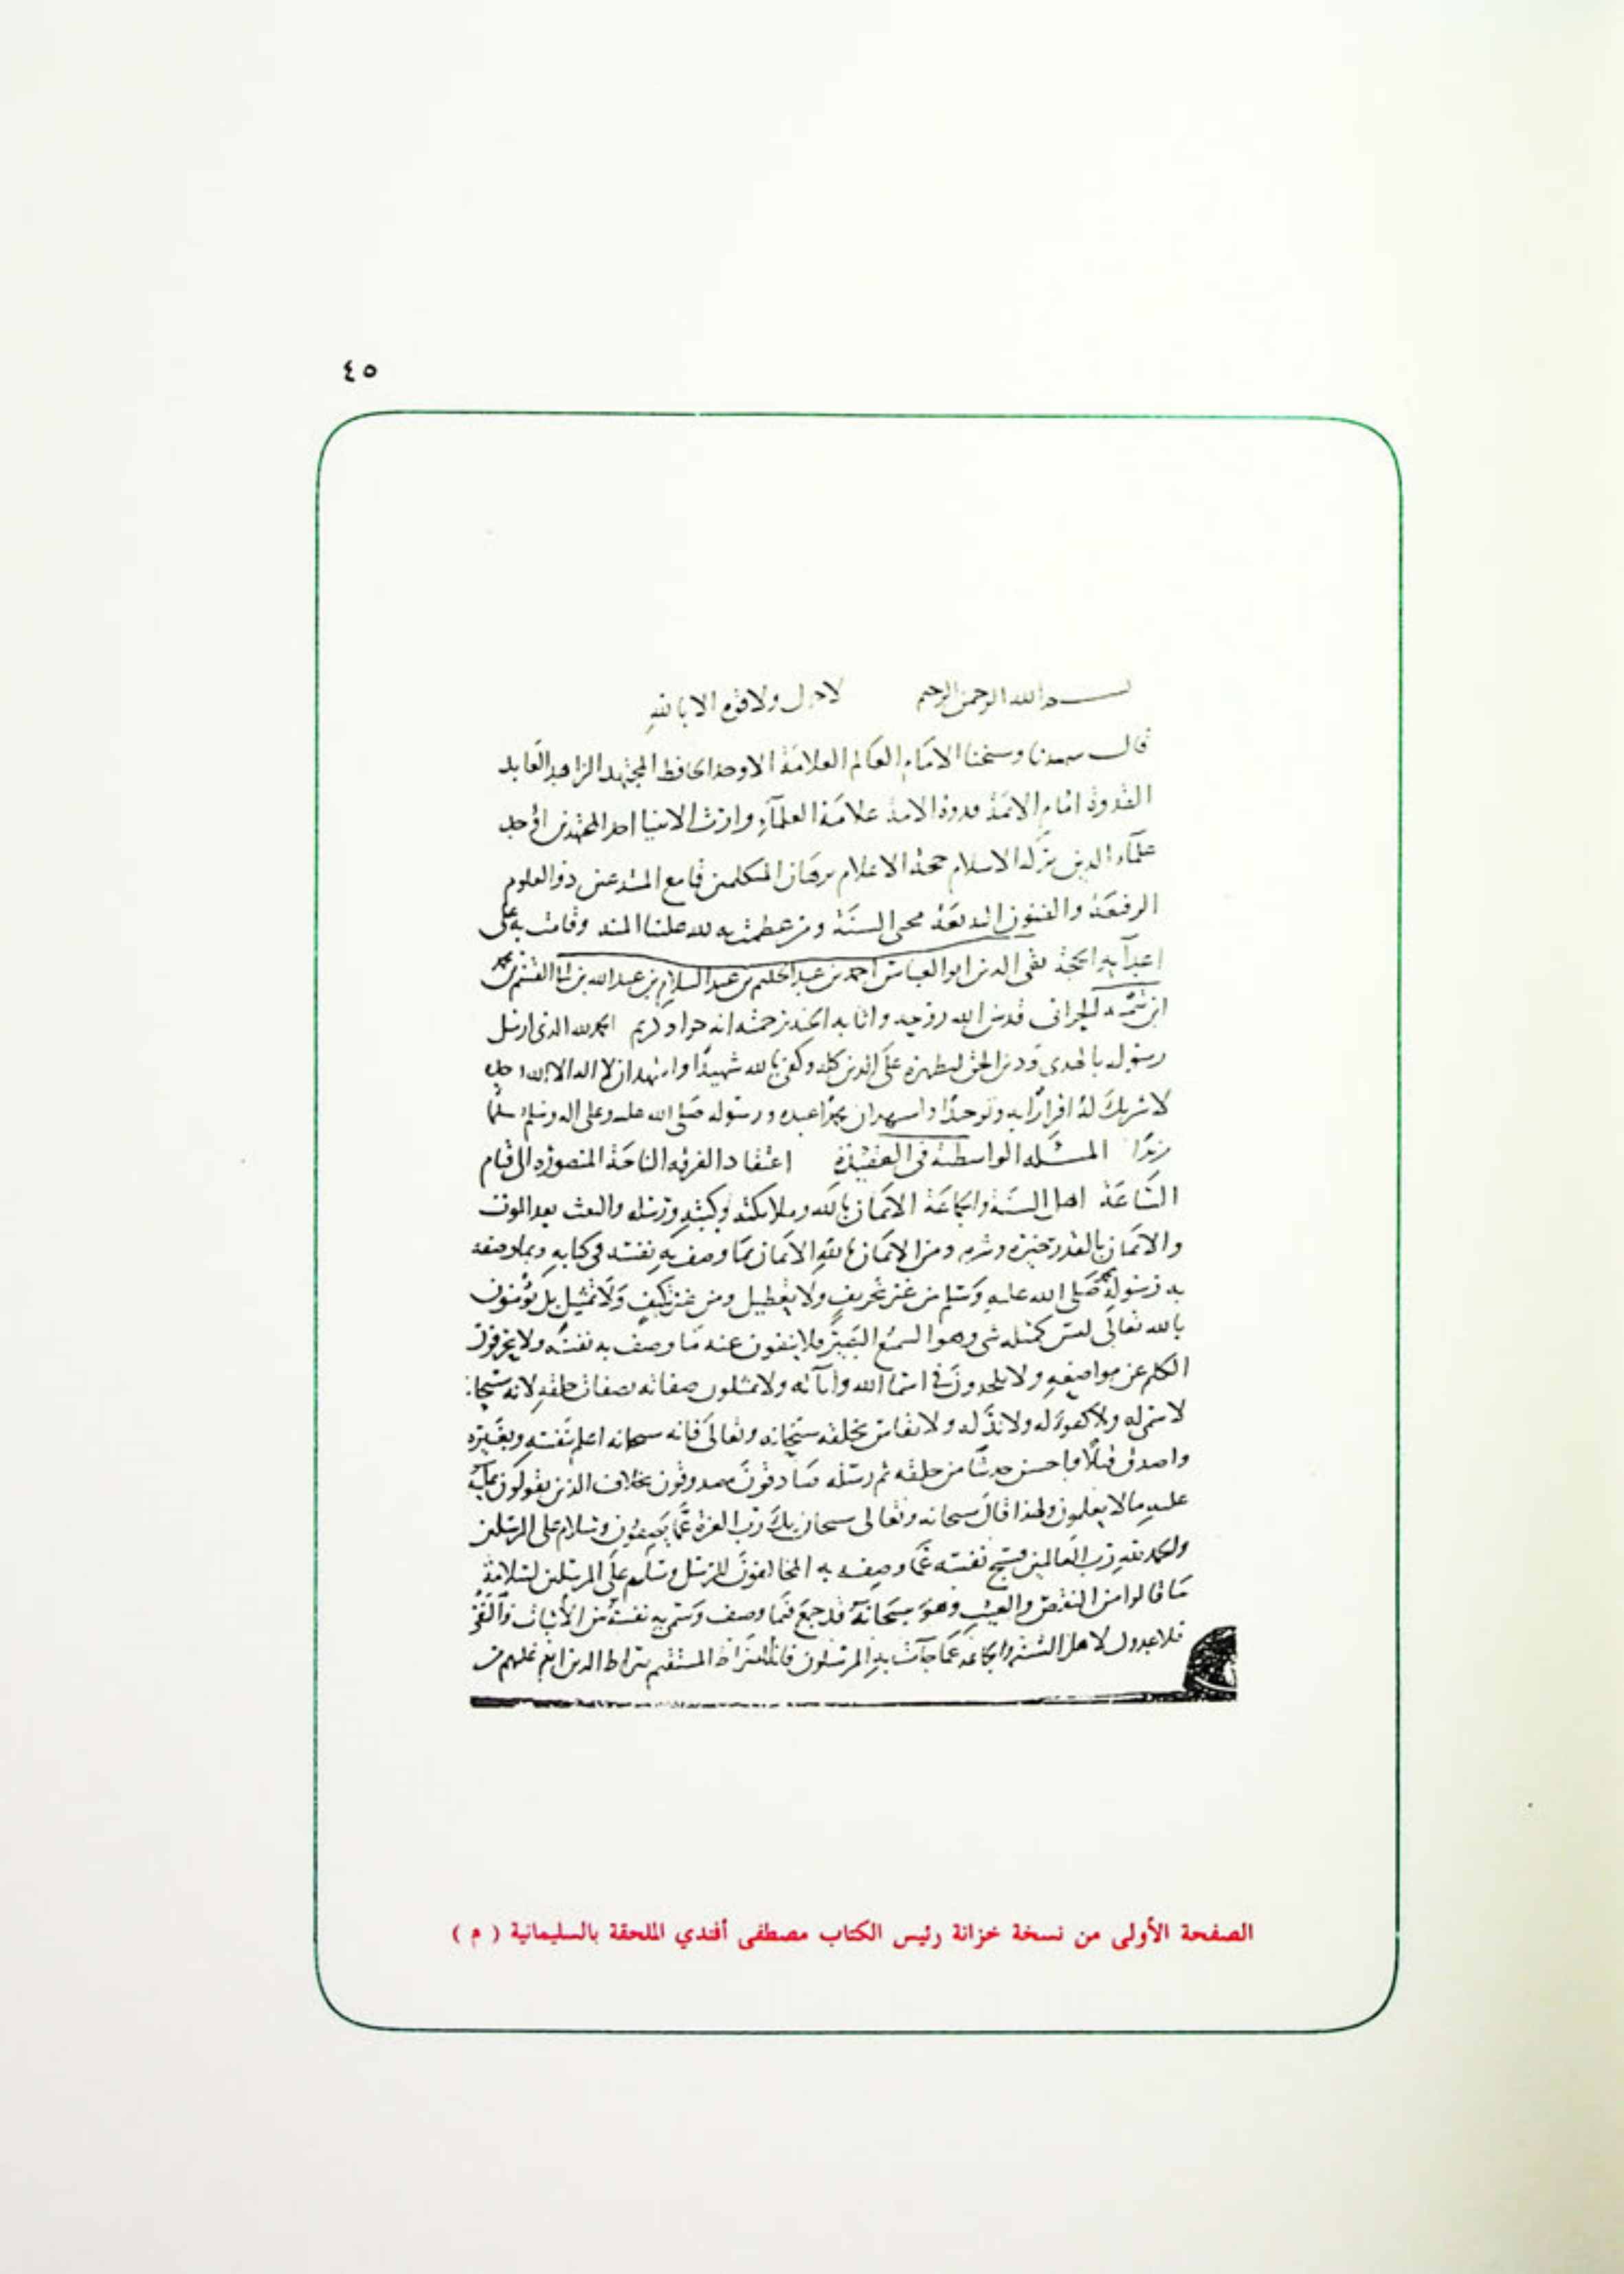 ٤٥
بسم الله الرحمن الرحيم لا حول ولا قوة الا بالله
قال سيدنا وشيخنا الامام العالم العلامة الاوحد الحافظ المجتهد الزاهد العابد
القدوة امام الائمة قدوة الامة علامة العلماء وارث الانبيا اخر المجتهدين اوحد
علماء الدين بركة الاسلام حجة الاعلام برهان المتكلمين قامع المبتدعين ذو العلوم
الرفيعة والفنون البديعة محي السنة ومن عظمت به لله علينا المنة وقامت به على
اعدآيه الحجة تقي الدين ابو العباس احمد بن عبد الحليم بن عبد السلام بن عبد الله بن ابي القسم بن محمد
ابن تيمية الحراني قدس الله روحه واثابه الجنة برحمته انه جواد كريم الحمد لله الذي ارسل
رسوله بالهدى ودين الحق ليظهره على الدين كله وكفى بالله شهيدًا واشهد ان لا اله الا الله وحده
لا شريك له اقرارًا به وتوحيدًا واشهد ان محمدًا عبده ورسوله صلى الله عليه وعلى اله وسلم تسليمًا
مزيدًا المسئلة الواسطية في العقيدة اعتقاد الفرقه الناجية المنصوره الى قيام
الساعة اهل السنة والجماعة الايمان بالله وملائكته وكتبه ورسله والبعث بعد الموت
والايمان بالقدر خيره وشره ومن الايمان بالله الايمان بما وصف به نفسه في كتابه وبما وصفه
به رسوله محمد صلى الله عليه وسلم من غير تحريف ولا تعطيل ومن غير تكييف ولا تمثيل بل يؤمنون
بالله تعالى ليس كمثله شي وهو السميع البصير فلا ينفون عنه ما وصف به نفسه ولا يحرفون
الكلم عن مواضعه ولا يلحدون في اسما الله وآياته ولا يمثلون صفاته بصفات خلقه لانه سبحانه
لا سمي له ولا كفو له ولا ند له ولا يقاس بخلقه سبحانه وتعالى فانه سبحانه اعلم بنفسه وبغيره
واصدق قيلًا واحسن حديثًا من خلقه ثم رسله صادقون مصدوقون بخلاف الذين يقولون
عليه ما لا يعلمون ولهذا قال سبحانه وتعالى سبحان ربك رب العزة عما يصفون وسلام على المرسلين
والحمد لله رب العالمين فسبح نفسه عما وصفه به المخالفون للرسل وسلم على المرسلين لسلامة
ما قالوا من النقص والعيب وهو سبحانه قد جمع فيما وصف وسمى به نفسه بين الاثبات والنفي
فلا عدول لاهل السنة والجماعة عما جآت به المرسلون فانه الصراط المستقيم صراط الذين انعم عليهم من
الصفحة الأولى من نسخة خزانة رئيس الكتاب مصطفى أفندي الملحقة بالسليمانية ( م )